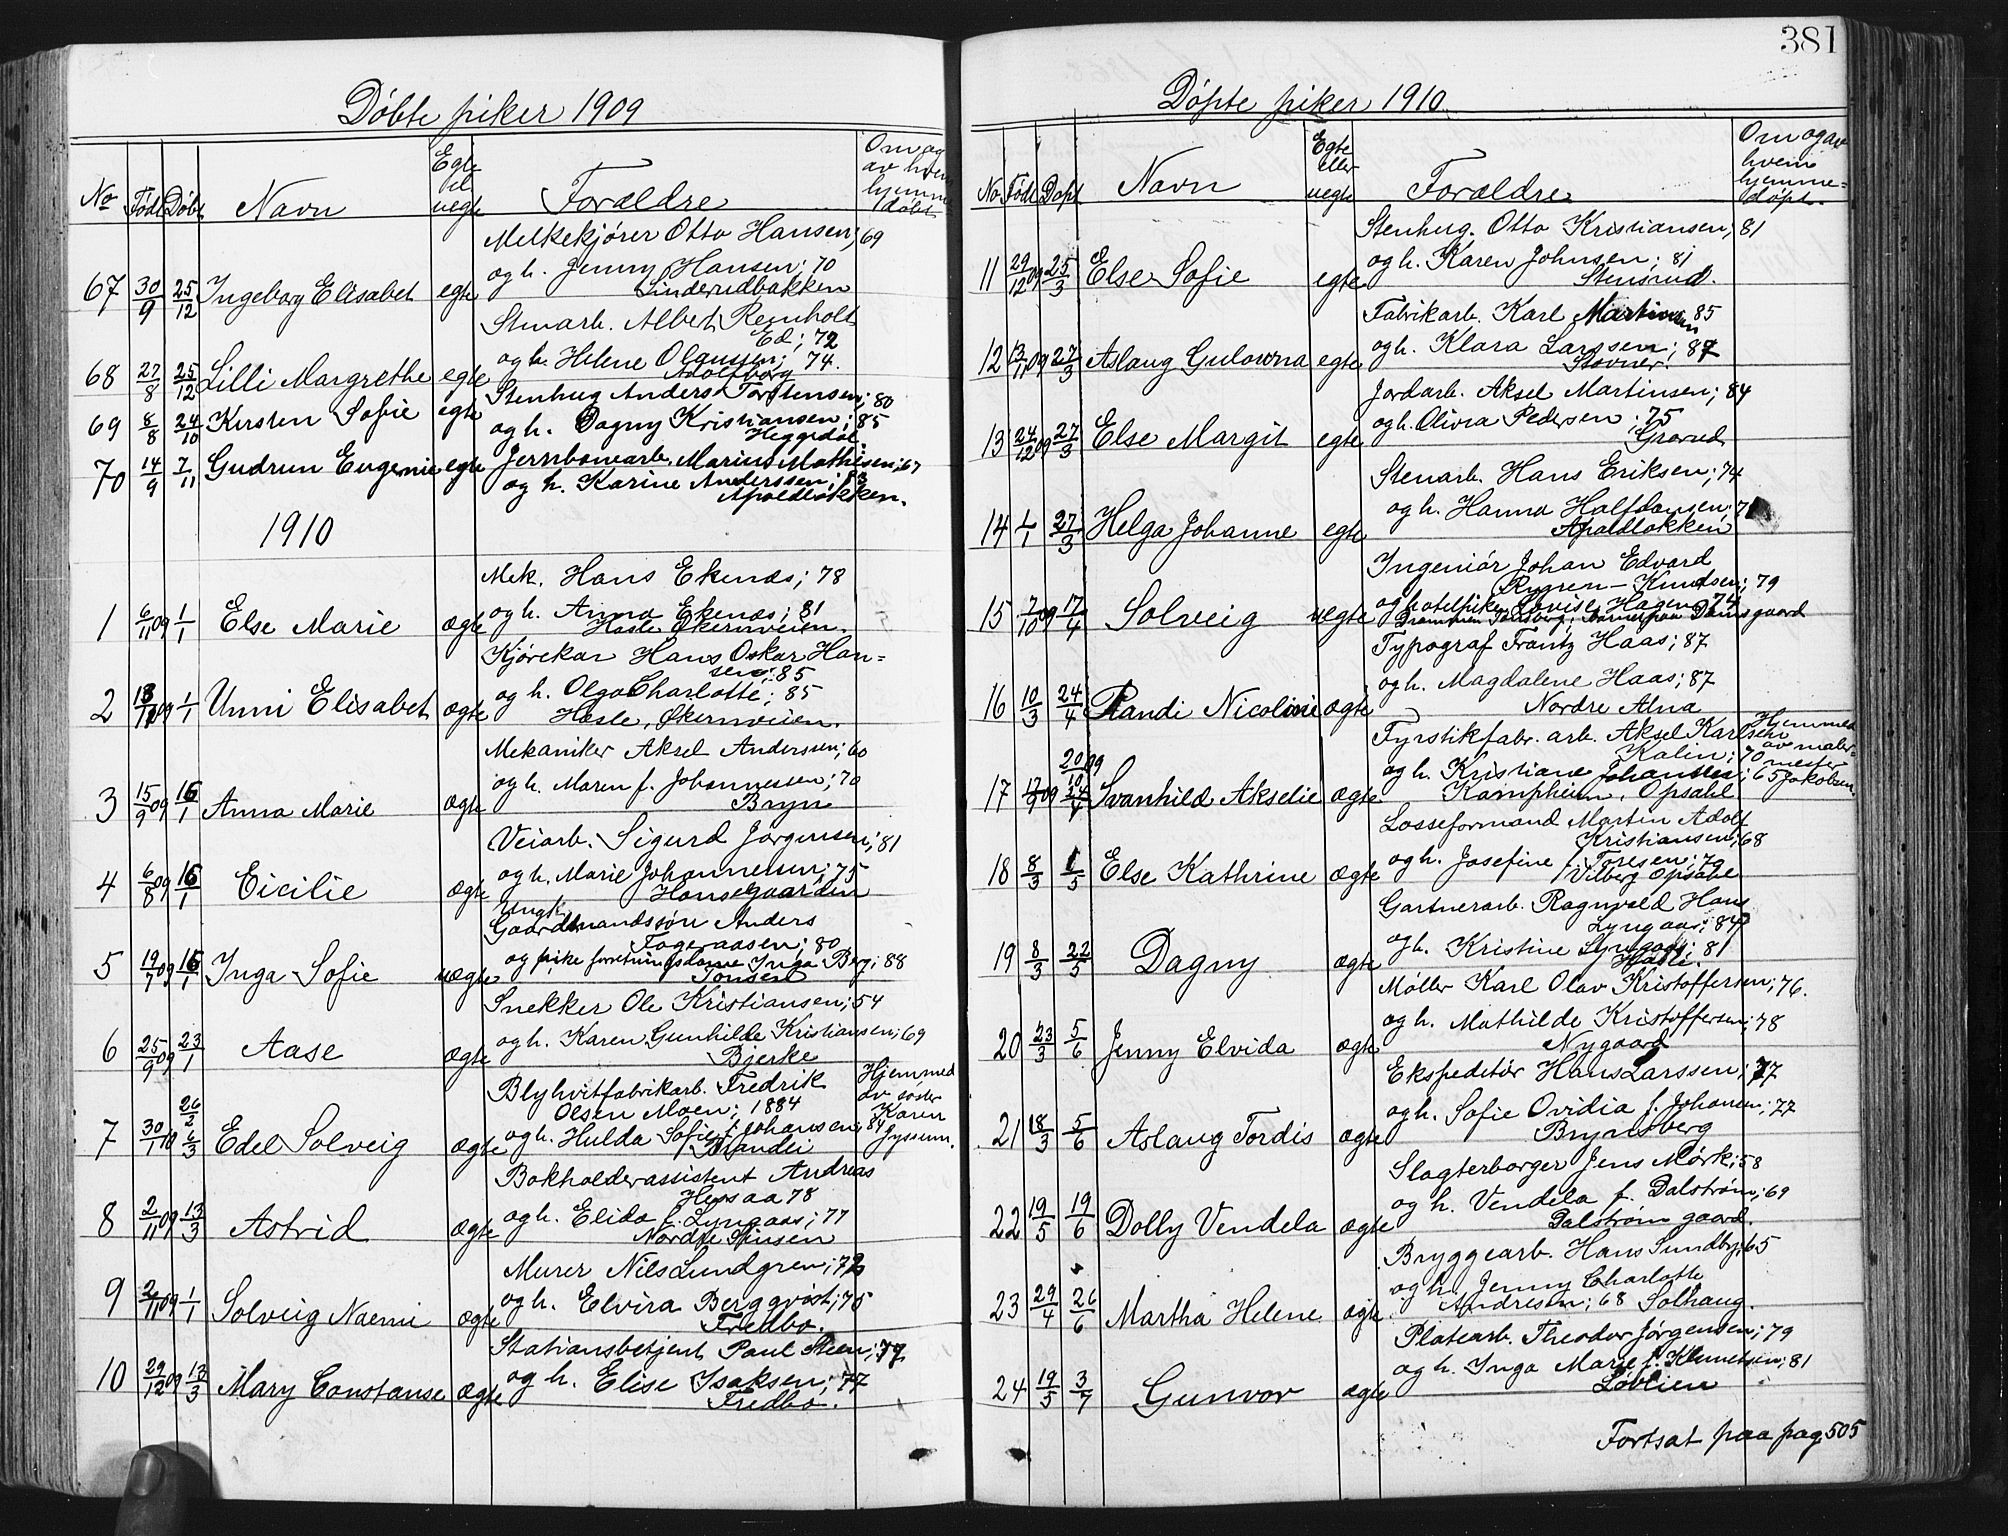 Døbte piker 1909
No Født Døbt Navn Egte el uegte Forældre Om og av hvem hjemmedøbt
67 30/9 25/12 Ingeborg Elisabet egte
Melkekjører Otto Hansen; 69
og h. Jenny Hansen; 70
Linderudbakken
68 27/8 25/12 Lilli Margrethe egte
Stenarb. Albert Reinholt
Ed; 72
og h. Helene Olaussen; 74.
Adolfborg
69 8/8 24/10 Kirsten Sofie egte
Stenhug Anders Torstensen; 80
og h. Dagny Kristiansen; 85
Heggedal
70 14/9 7/11 Gudrun Eugenie egte
Jernbanearb. Marius Mathisen; 67
og h. Karine Anderssen; 83
Apalløkken.
1910
1 6/11 09 1/1 Else Marie ægte
Mek. Hans Ekenæs; 78
og h. Anna Ekenæs; 81
Hasle Økernveien.
2 18/11 09 1/1 Unni Elisabet ægte
Kjørekar Hans Oskar Han=
sen; 85
og h. Olga Charlotte; 85
Hasle, Økernveien.
3 15/9 09 16/1 Anna Marie ægte
Mekaniker Aksel Anderssen; 60
og h. Maren f. Johannessen; 70
Bryn
4 6/8 09 16/1 Cicilie ægte
Veiarb. Sigurd Jørgensen; 81
og h. Marie Johannessen; 75
Hansegaarden
5 19/7 09 16/1 Inga Sofie uægte
Ungk.
Gaardmandssøn Anders
Fageraasen; 80
og pike forretningsdame Inga Berg; 88
Tonsen
6 25/9 09 23/1 Aase ægte
Snekker Ole Kristiansen; 54
og h. Karen Gunhilde Kristiansen; 69
Bjerke
7 30/1 10 26/2 6/3 Edel Solveig ægte
Blyhvitfabrikarb. Fredrik
Olsen Moen; 1884
og h. Hulda Sofie f. Johansen; 84
Strandli
Hjemmed av søster Karen Jyssum.
8 2/11 09 13/3 Astrid ægte
Bokholderassistent Andreas
Hessaa 78
og h. Elida f. Lyngaas; 77
Nordre Sinsen
9 2/11 09 1/1 Solveig Naemi ægte
Murer Nils Lundgren; 72
og h. Elvira Bergqvist; 75
Fredbo.
10 29/12 09 13/3 Mary Constanse ægte
Stationsbetjent Paul Steen; 77
og h. Elise Isaksen; 77
Fredbo.
381
Døpte piker 1910
No Født Døpt Navn Egte eller uegte Forældre Om og av hvem hjemme=døpt.
11 29/12 09 25/3 Else Sofie egte
Stenhug. Otto Kristiansen; 81
og h. Karen Johnsen; 81
Stensrud.
12 13/11 09 27/3 Aslaug Gulowna egte
Fabrikarb. Karl Martinsen 85
og h. Klara Larssen; 87
Stovner.
13 24/12 09 27/3 Else Margit egte
Jordarb. Aksel Martinsen; 84
og h. Olivia Pedersen; 75
Grorud
14 1/1 27/3 Helga Johanne egte
Stenarb. Hans Eriksen; 74
og h. Hanna Halfdansen;
Apalløkken
15 7/10 09 17/4 Solveig uegte
Ingeniør Johan Edvard
Rygren-Knudsen; 79
og hotelpike Lovise Hagen 74
Drammen Tønsberg; Barnet paa Dams gaard
16 10/3 24/4 Randi Nicoline ægte
Typograf Frantz Haas; 87
og h. Magdalene Haas; 87
Nordre Alna
17 17/9 09 20/10 09 24/4 Svanhild Akselie ægte
Fyrstikfabr. arb. Aksel Karlsen
Kalin; 70
og h. Kristiane Johansen; 65
Kampheim, Opsahl
Hjemmed av malermester Jakobsen.
18 8/3 1/5 Else Kathrine ægte
Losseformand Martin Adolf
Kristiansen; 68
og h. Josefine f. Toresen; 70
Vilberg Opsahl
19 8/3 22/5 Dagny ægte
Gartnerarb. Ragnvald Hans
Lyngaas; 87
og h. Kristine Lyngaas; 81
Hasle.
20 23/3 5/6 Jenny Elvida ægte
Møller Karl Olav Kristoffersen; 76.
og h. Mathilde Kristoffersen; 78
Nygaard
21 18/3 5/6 Aslaug Tordis ægte
Ekspeditør Hans Larssen; 77
og h. Sofie Ovidia f. Johansen; 77
Brynsberg
22 19/5 19/6 Dolly Vendela ægte
Slagterborger Jens Mørk; 58
og h. Vendela f. Dalstrøm; 69
Dalstrøm gaard.
23 29/4 26/6 Martha Helene ægte
Bryggearb. Hans Sundby; 65
og h. Jenny Charlotte
Andresen; 68 Solhaug.
24 19/5 3/7 Gunvor ægte
Platearb. Theodor Jørgensen; 79
og h. Inga Marie f. Klemetsen; 81
Løvlien
Fortsat paa pag 505